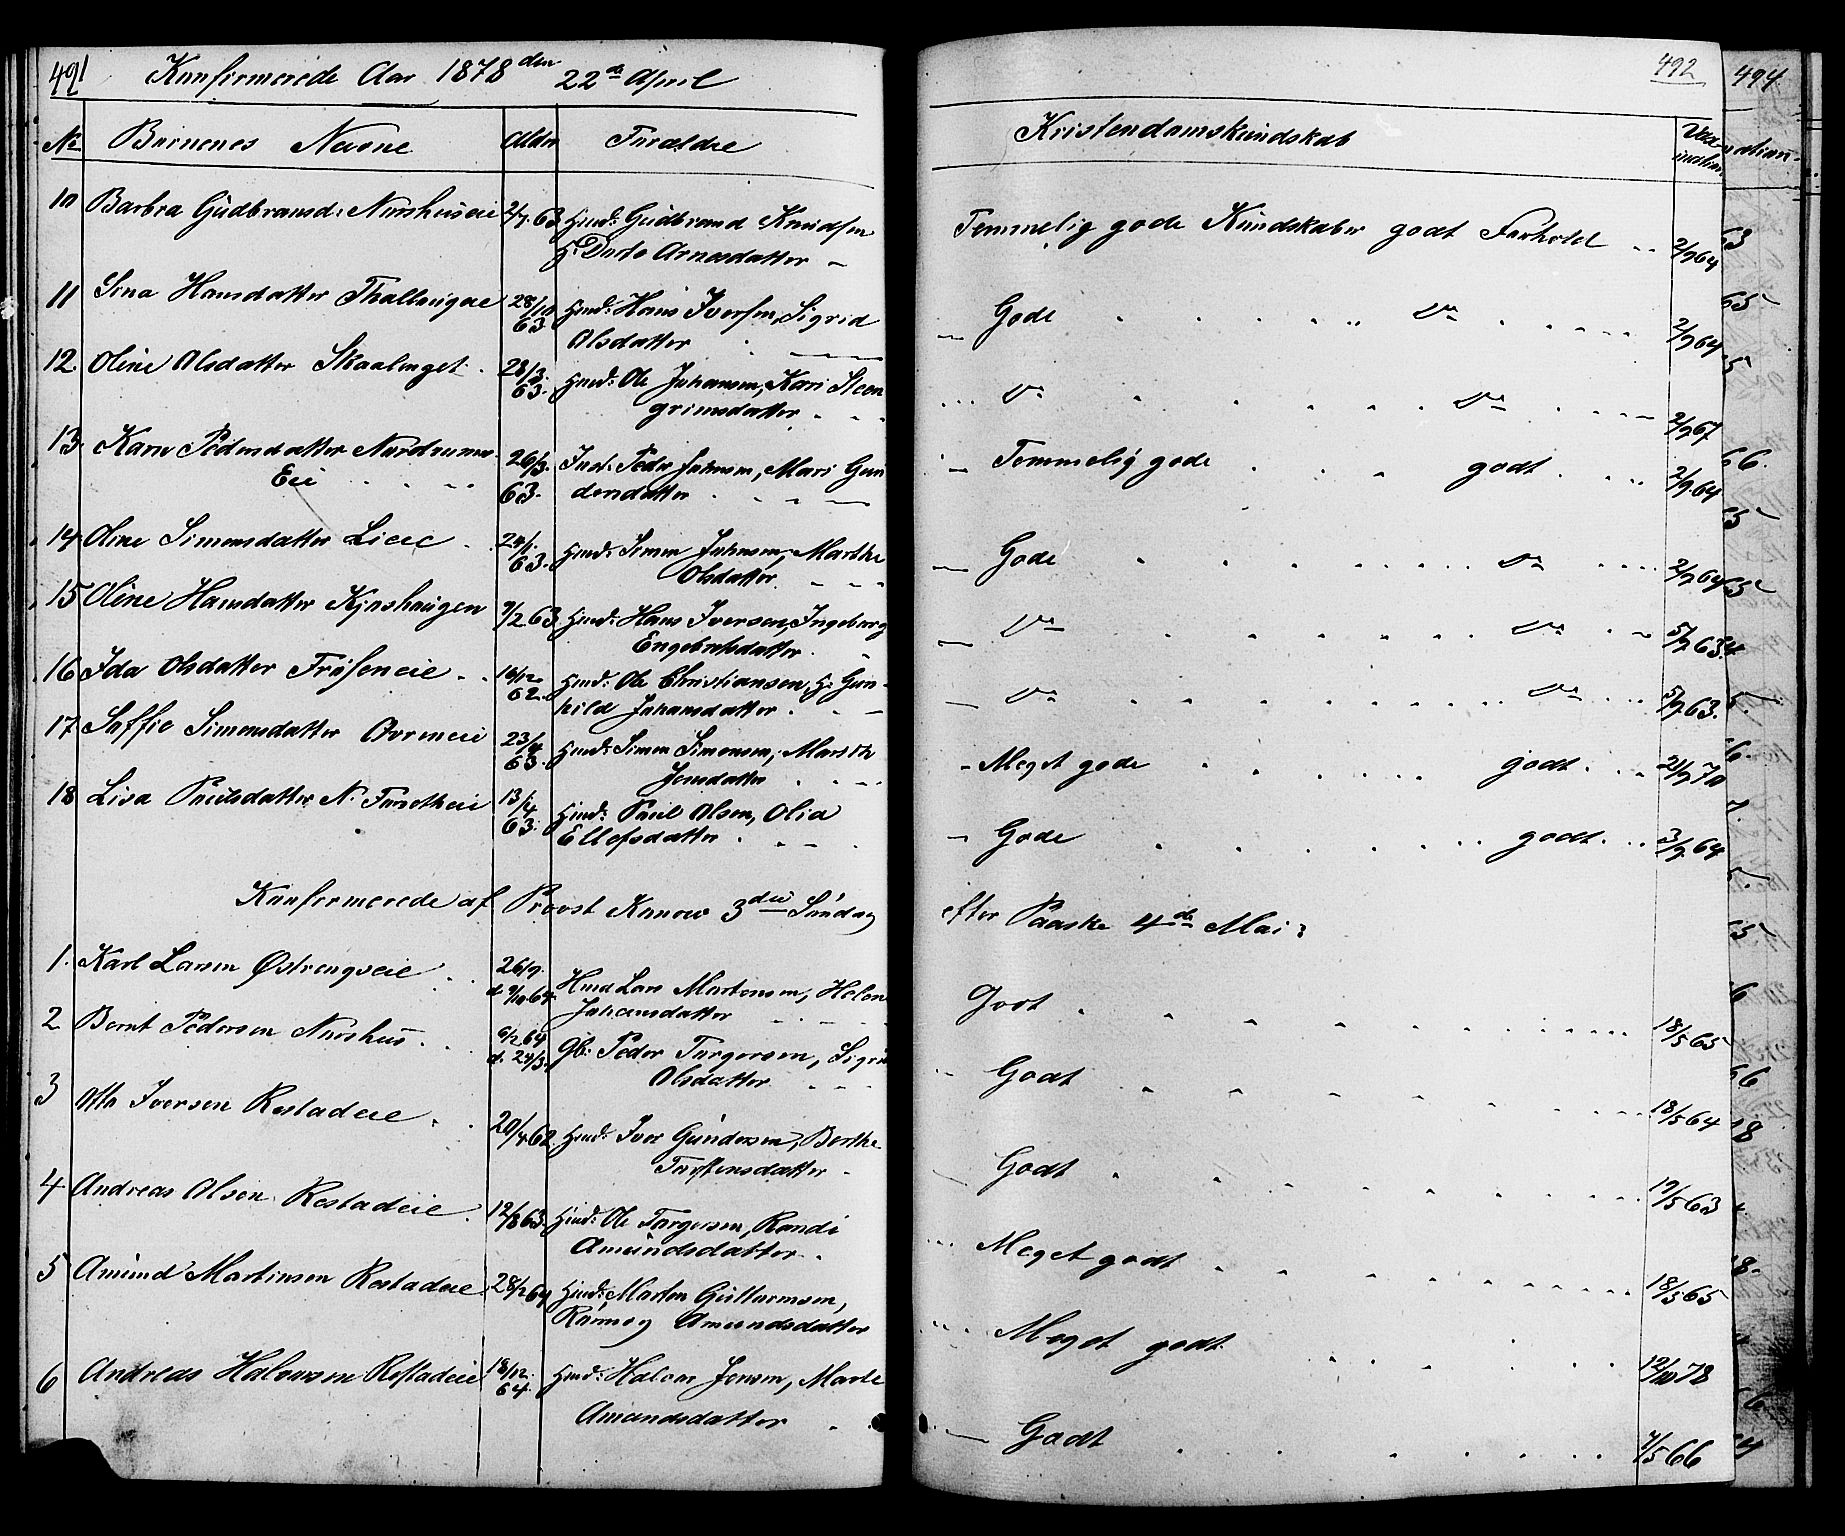 491 Konfirmerede Aar 1878 den 22de April
No Børnenes Navne Alder Forældre
10 Barbra Gudbrandsd. Nordhuseie 2/7 63 Hmd: Gudbrand Knudsen
H. Dorte Arnesdatter
11 Lina Hansdatter Thallaugeie 28/10 63 Hmd: Hans Iversen, Sigrid
Olsdatter
12. Oline Olsdatter Skaalenget 28/3 63. Hmd: Ole Johansen, Kari Steen
grimsdatter
13. Karn Pedersdatter Nordrum
Eie 26/3 63. Inds: Peder Johnsen, Mari Gun
dersdatter
14 Oline Simensdatter Lieie 24/1 63. Hmd: Simen Johnsen, Marthe
Olsdatter
15 Oline Hansdatter Kjøshaugen 9/2 63. Hmd: Hans Iversen, Ingeborg
Engebretsdatter
16 Ida Olsdatter Frøseneie 16/12 62. Hmd: Ole Christiansen, H. Gun-
hild Johansdatter
17 Soffie Simensdatter Ovreneie 23/4 63. Hmd: Simen Simensen, Marith
Jonsdatter
18 Lisa Paulsdatter N. Forsetheie 13/4 63. Hmd: Paul Olsen, Olia
Ellefsdatter
Konfirmerede af Provst Kanow 3die Søndag
1. Karl Larsen Østrengseie 26/9 d. 9/10 64. Hmd Lars Martensen, Helen
Johansdatter
2 Bernt Pedersen Nordhus 6/2 64 d. 24/3. Gb: Peder Torgersen, Sigri
Olsdatter
3 Otto Iversen Rostadeie 20/4 62. Hmd: Iver Gundersen, Berthe
Torstensdatter
4 Andreas Olsen Rostadeie 12/8 63. Hmd: Ole Torgersen, Randi
Amundsdatter
5 Amund Martinsen Rostadeie 28/2 64 Hmd: Marten Guttormsen,
Rønnog Amundsdatter
6 Andreas Halvorsen Rostadeie 18/12 64. Hmd: Halvor Jonsen, Marte
Amundsdatter
492
Kristendomskundskab Vaccination
Temmelig gode Kundskaber godt Forhold 2/9 64
Gode Do 2/9 64
Do Do 2/9 67
Temmelig gode godt 2/9 64
Gode Do 2/9 64
Do Do 5/9 63
Do Do 5/9 63.
Meget gode godt 21/9 70
Gode godt 3/9 64
efter Paaske 4de Mai:
Godt 18/5 65
Godt 18/5 64
Godt 17/5 63
Meget godt 18/5 65
Meget godt 12/10 78
Godt 4/5 66
494